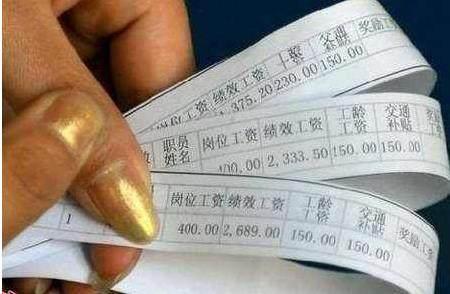 岗位工资 绩效工资 工龄工资 交通补贴 奖励工资
375.20 230.00 150.00
职员姓名 岗位工资 绩效工资 工龄工资 交通补贴 奖励
400.00 2,333.50 150.00 150.00
岗位工资 绩效工资 工龄工资 交通补贴 奖励工资
1 400.00 2,689.00 150.00 150.00